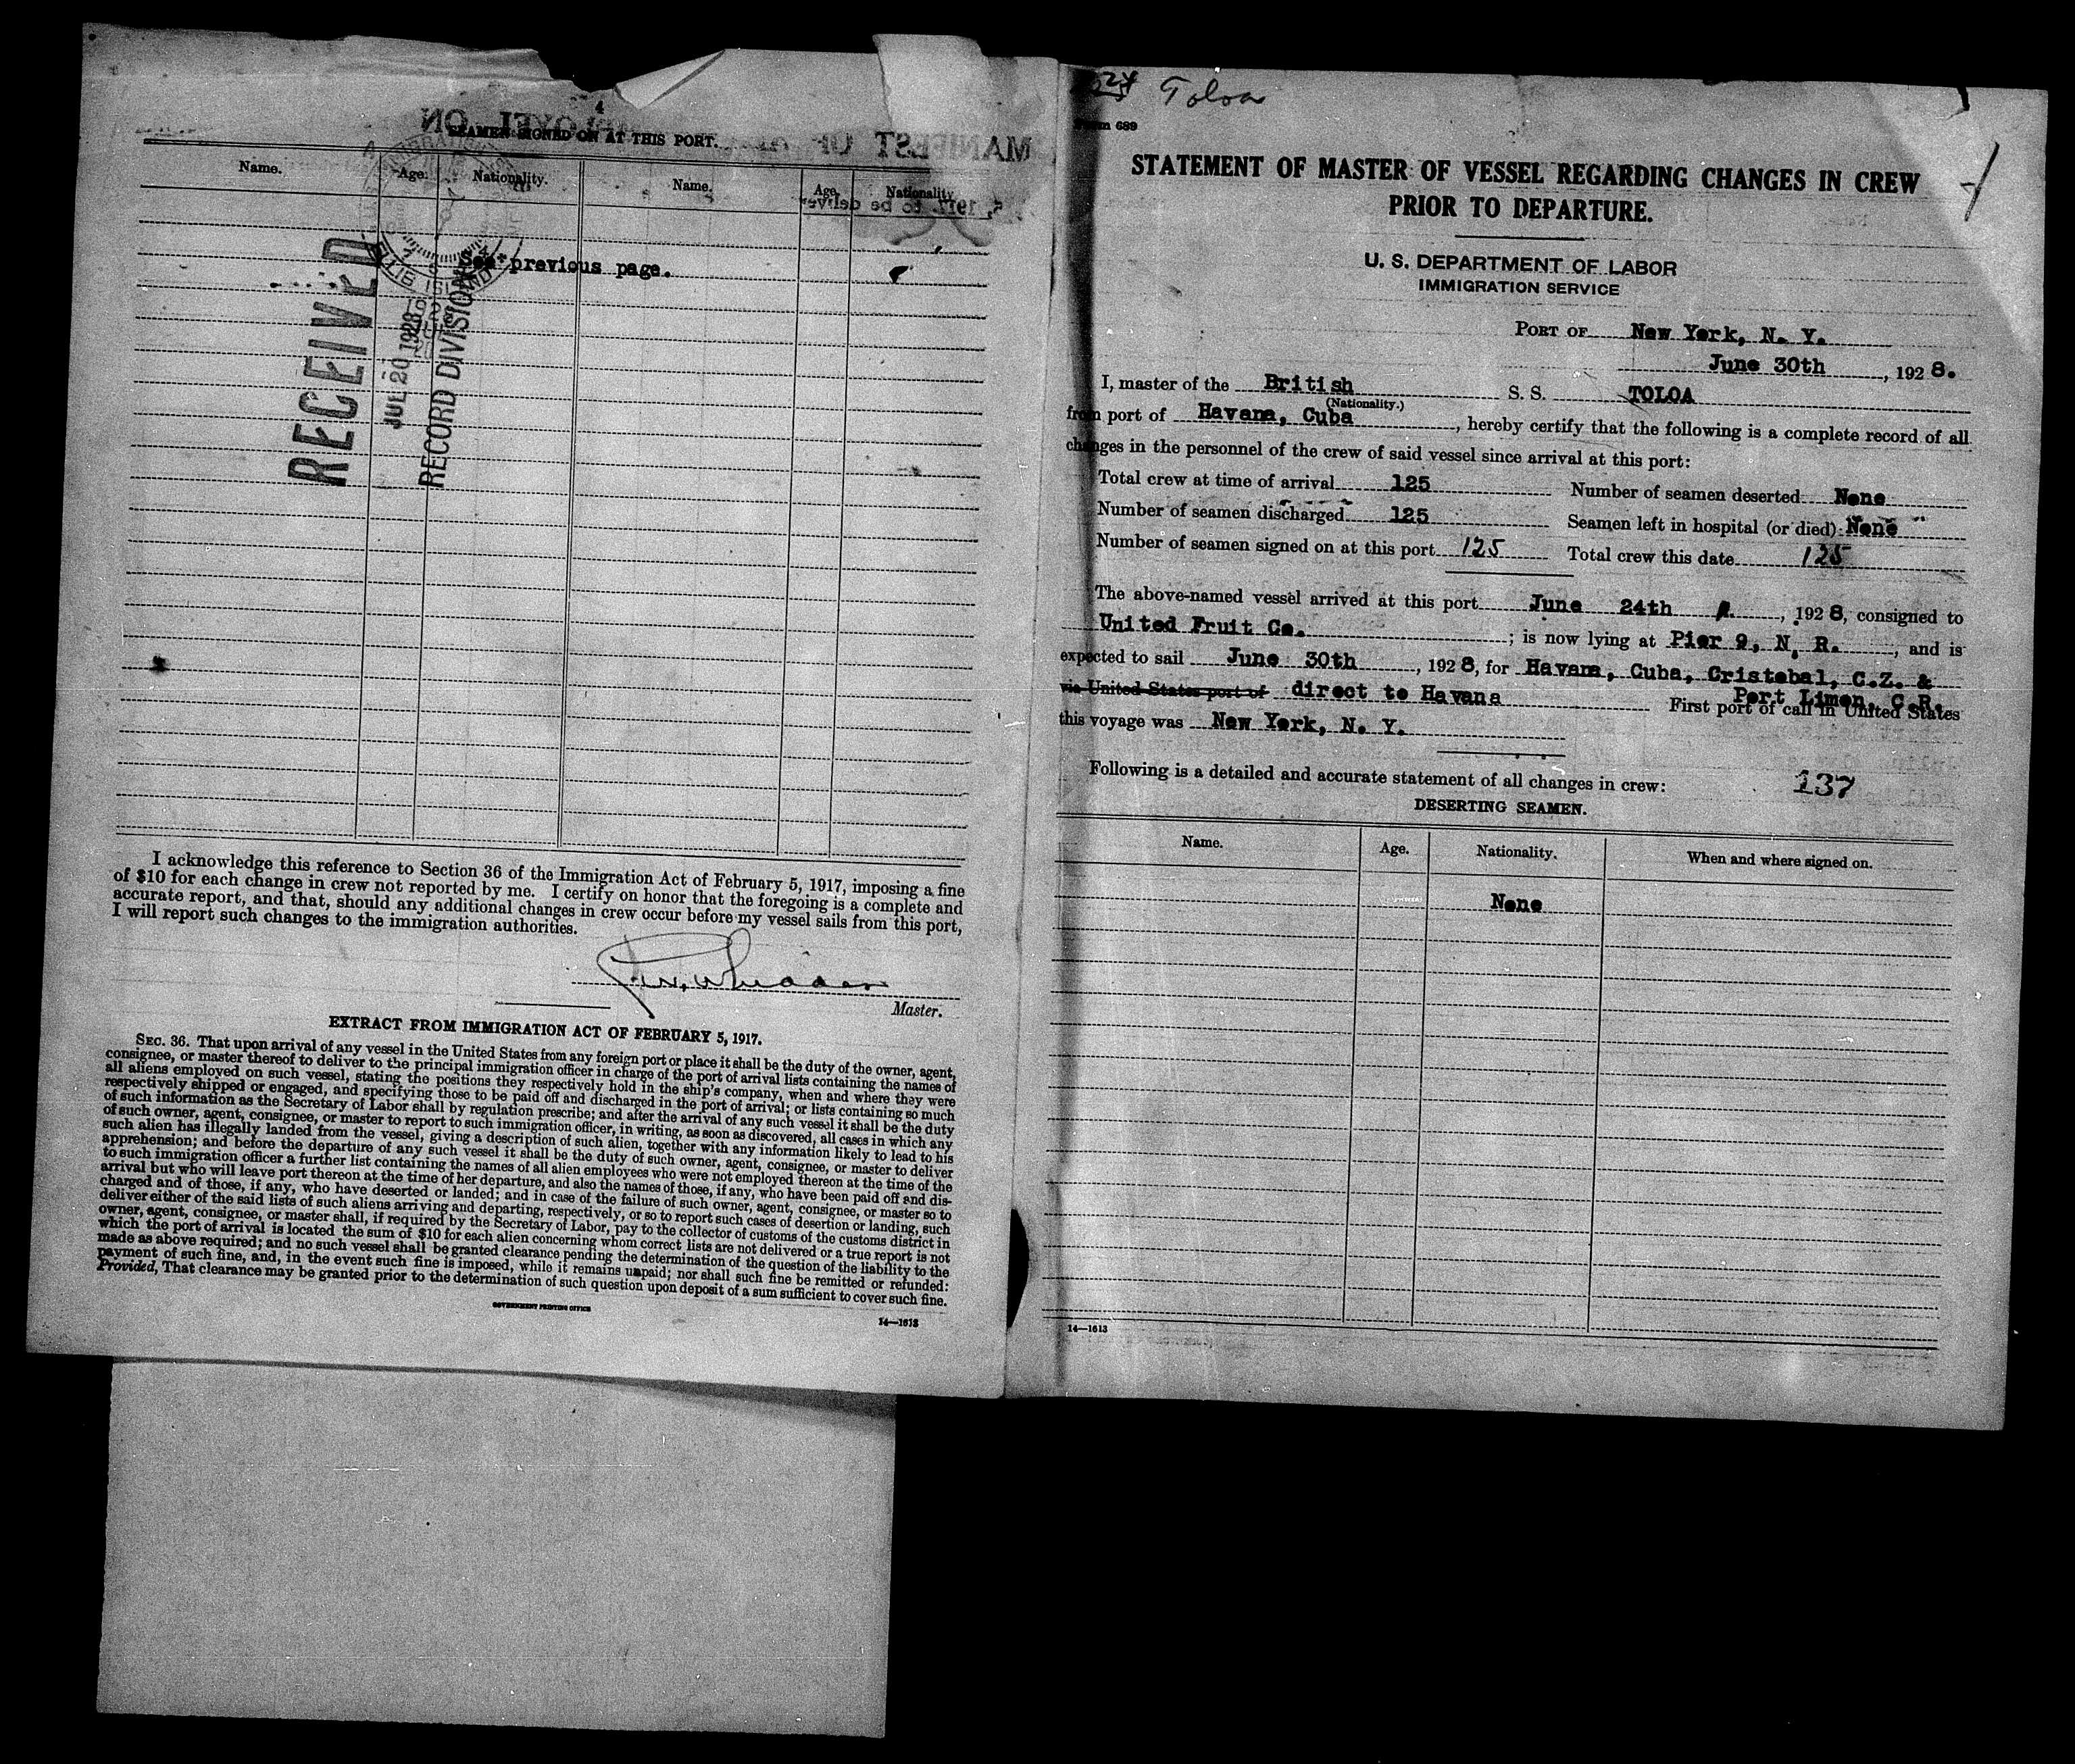 4
SEAMEN SIGNED ON AT THIS PORT.
Name. Age. Nationality. Name. Age. Nationality.
See previous page.
RECEIVED
JUL 20 1928
RECORD DIVISION
I acknowledge this reference to Section 36 of the Immigration Act of February 5, 1917, imposing a fine
of $10 for each change in crew not reported by me. I certify on honor that the foregoing is a complete and
accurate report, and that, should any additional changes in crew occur before my vessel sails from this port,
I will report such changes to the immigration authorities.
Master.
EXTRACT FROM IMMIGRATION ACT OF FEBRUARY 5, 1917.
SEC. 36. That upon arrival of any vessel in the United States from any foreign port or place it shall be the duty of the owner, agent,
consignee, or master thereof to deliver to the principal immigration officer in charge of the port of arrival lists containing the names of
all aliens employed on such vessel, stating the positions they respectively hold in the ship's company, when and where they were
respectively shipped or engaged, and specifying those to be paid off and discharged in the port of arrival; or lists containing so much
of such information as the Secretary of Labor shall by regulation prescribe; and after the arrival of any such vessel it shall be the duty
of such owner, agent, consignee, or master to report to such immigration officer, in writing, as soon as discovered, all cases in which any
such alien has illegally landed from the vessel, giving a description of such alien, together with any information likely to lead to his
apprehension; and before the departure of any such vessel it shall be the duty of such owner, agent, consignee, or master to deliver
to such immigration officer a further list containing the names of all alien employees who were not employed thereon at the time of the
arrival but who will leave port thereon at the time of her departure, and also the names of those, if any, who have been paid off and dis-
charged and of those, if any, who have deserted or landed; and in case of the failure of such owner, agent, consignee, or master so to
deliver either of the said lists of such aliens arriving and departing, respectively, or so to report such cases of desertion or landing, such
owner, agent, consignee, or master shall, if required by the Secretary of Labor, pay to the collector of customs of the customs district in
which the port of arrival is located the sum of $10 for each alien concerning whom correct lists are not delivered or a true report is not
made as above required; and no such vessel shall be granted clearance pending the determination of the question of the liability to the
payment of such fine, and, in the event such fine is imposed, while it remains unpaid; nor shall such fine be remitted or refunded:
Provided, That clearance may be granted prior to the determination of such question upon deposit of a sum sufficient to cover such fine.
GOVERNMENT PRINTING OFFICE
14—1613
24 Toloa
689
STATEMENT OF MASTER OF VESSEL REGARDING CHANGES IN CREW
PRIOR TO DEPARTURE.
U. S. DEPARTMENT OF LABOR
IMMIGRATION SERVICE
PORT OF New York, N. Y.
June 30th, 1928.
I, master of the British S. S. TOLOA
(Nationality.)
from port of Havana, Cuba, hereby certify that the following is a complete record of all
changes in the personnel of the crew of said vessel since arrival at this port:
Total crew at time of arrival 125 Number of seamen deserted None
Number of seamen discharged 125 Seamen left in hospital (or died) None
Number of seamen signed on at this port 125 Total crew this date 125
The above-named vessel arrived at this port June 24th, 1928, consigned to
United Fruit Co.; is now lying at Pier 9, N. R., and is
expected to sail June 30th, 1928, for Havana, Cuba, Cristobal, C.Z. &
Port Limon, C.R.
via United States port of direct to Havana First port of call in United States
this voyage was New York, N. Y.
Following is a detailed and accurate statement of all changes in crew: 137
DESERTING SEAMEN.
Name. Age. Nationality. When and where signed on.
None
14—1613